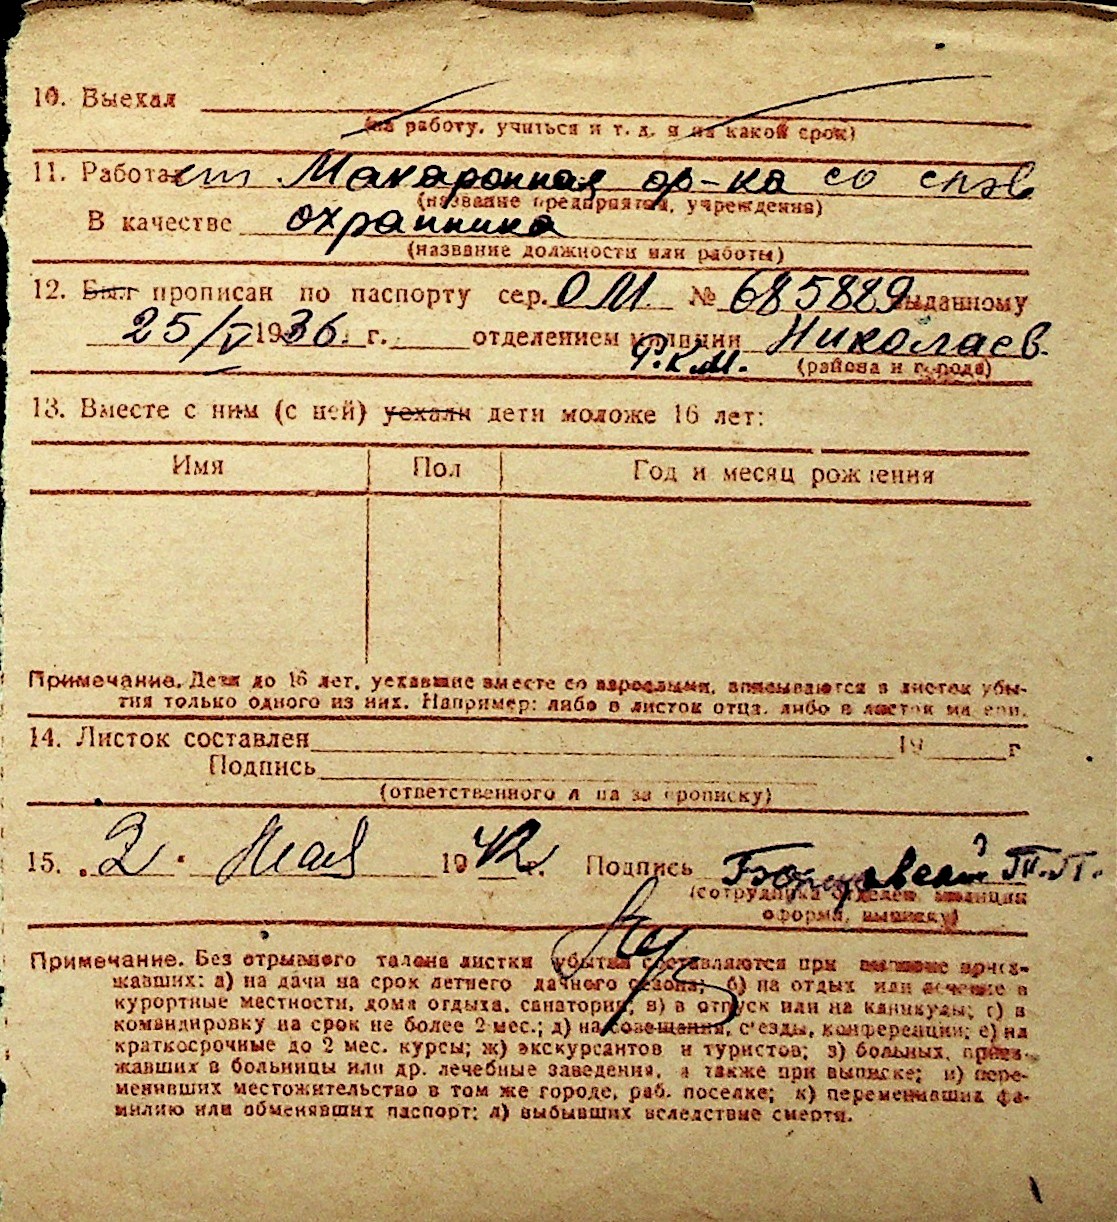 10. Выехал
(на работу, учиться и т. д. и на какой срок)
11. Работает Макаронная ф-ка со слов
(название предприятия, учреждения)
В качестве охранника
(название должности или работы)
12. Был прописан по паспорту сер. ОМ № 685889 выданному
25/V 1936 г. отделением милиции Николаев.
Р.К.М. (района и города)
13. Вместе с ним (с ней) уехали дети моложе 16 лет:
Имя Пол Год и месяц рождения
Примечание. Дети до 16 лет, уехавшие вместе со взрослыми, вписываются в листок убы-
тия только одного из них. Например: либо в листок отца, либо в листок матери.
14. Листок составлен 19 г
Подпись
(ответственного лица за прописку)
15. 2 мая 1942 г. Подпись
(сотрудника отделен. милиции
оформл. выписку)
Примечание. Без отрывного талона листки убытия составляются при выписке приез-
жавших: а) на дачи на срок летнего дачного сезона; б) на отдых или лечение в
курортные местности, дома отдыха, санатории; в) в отпуск или на каникулы; г) в
командировку на срок не более 2 мес.; д) на совещания, с'езды, конференции; е) на
краткосрочные до 2 мес. курсы; ж) экскурсантов и туристов; з) больных, приез-
жавших в больницы или др. лечебные заведения, а также при выписке; и) пере-
менивших местожительство в том же городе, раб. поселке; к) переменивших фа-
милию или обменявших паспорт; л) выбывших вследствие смерти.